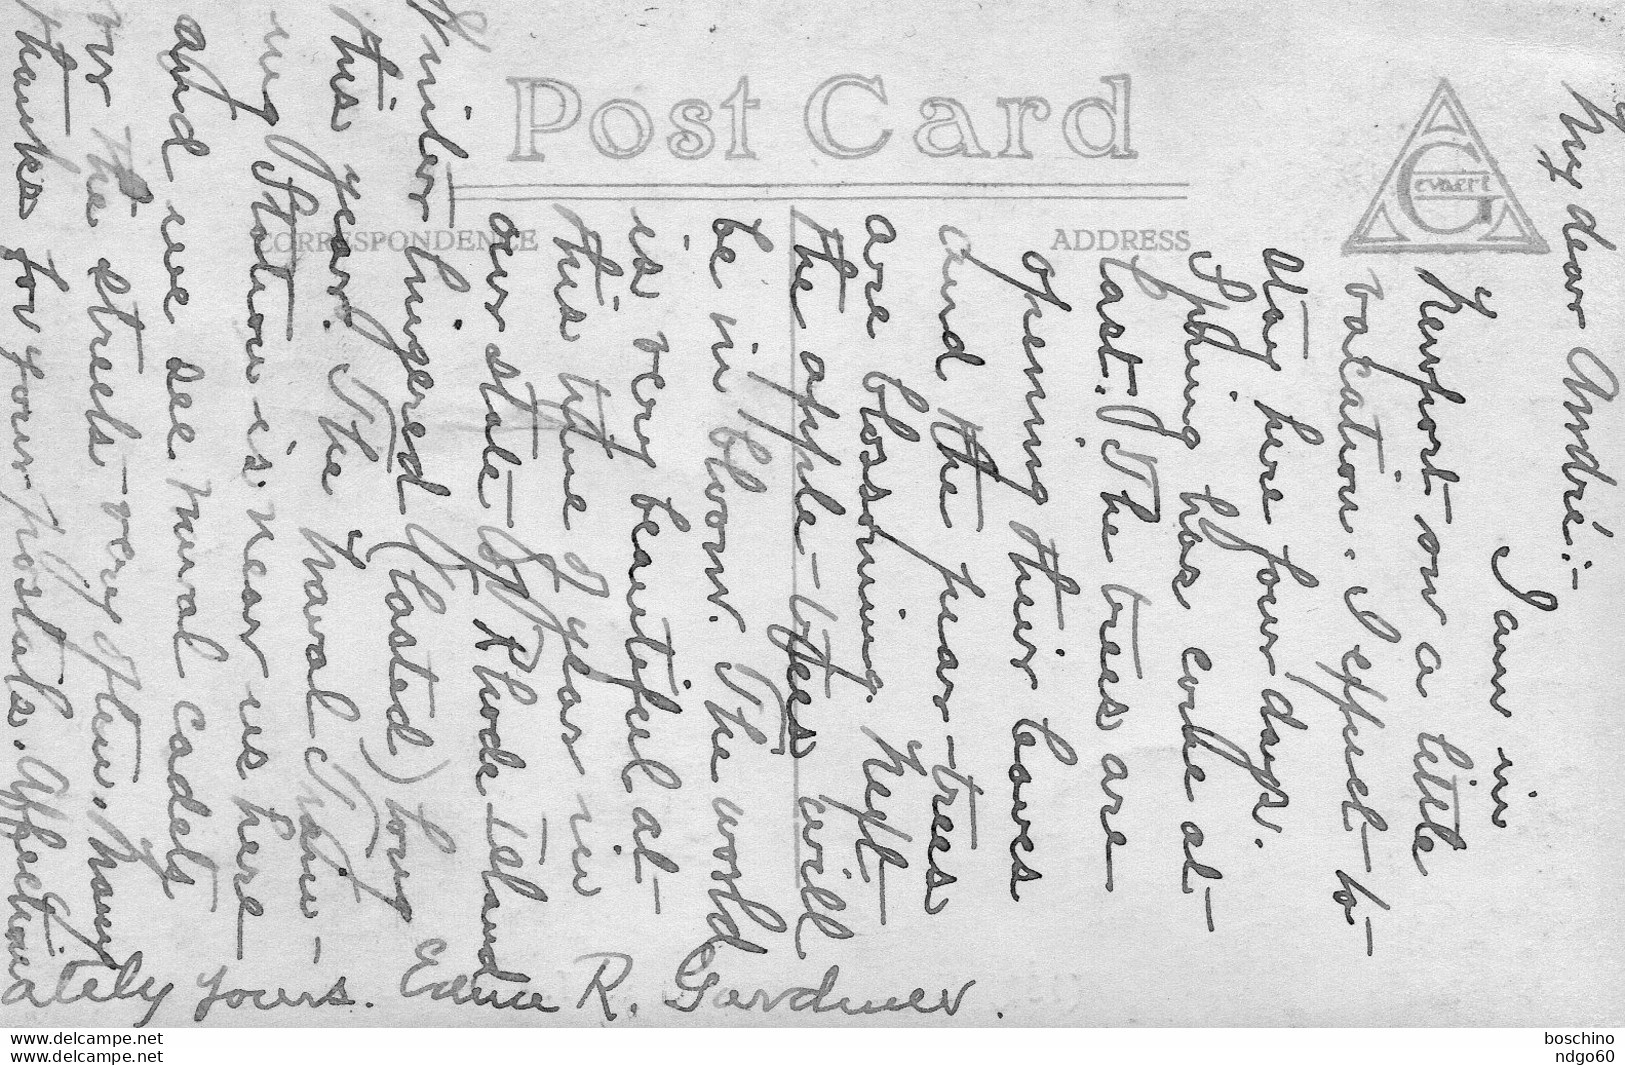 Post Card
CORRESPONDENCE
ADDRESS
Gevaert
My dear André:-
I am in
Newport on a little
vacation. I expect to
stay here four days.
Spring has come at
last. The trees are
opening their leaves
and the pear-trees
are blossoming. Next
the apple-trees will
be in bloom. The world
is very beautiful at
this time of year in
our state of Rhode Island
Winter lingered (lasted) long
this year. The Naval Train-
ing Station is near us here
and we see naval cadets
on the streets very often. Many
thanks for your postals. Affection-
ately yours. Edna R. Gardner.
boschino
ndgo60